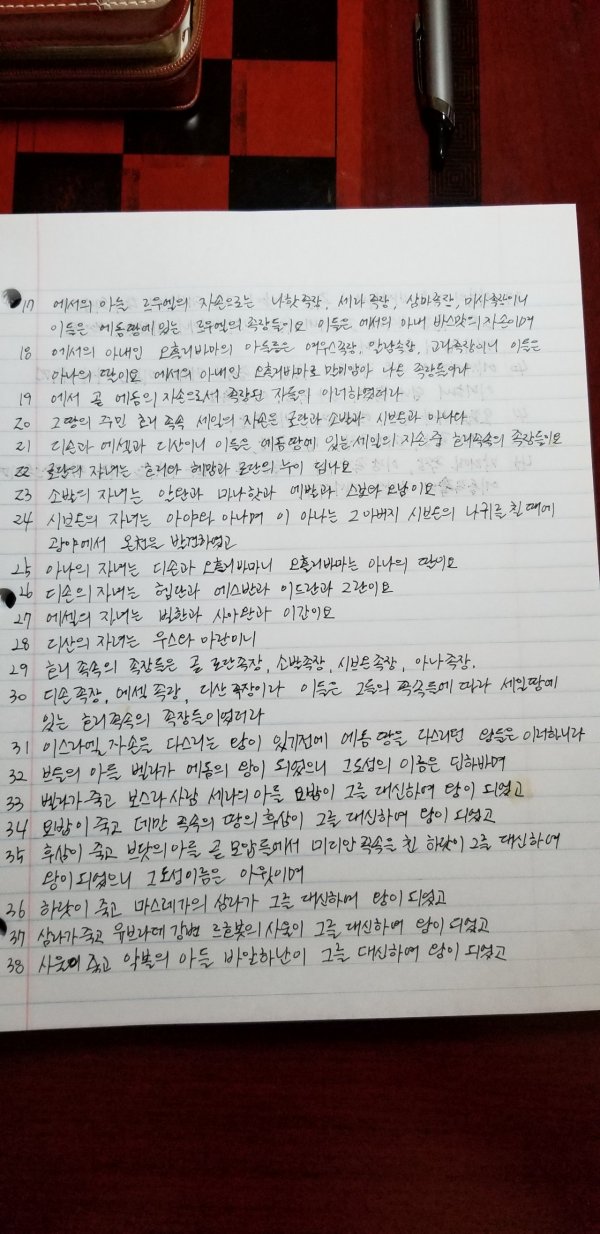 17 에서의 아들 르우엘의 자손으로는 나핫족장, 세라 족장, 삼마족장, 미사족장이니
이들은 에돔땅에 있는 르우엘의 족장들이요 이들은 에서의 아내 바스맛의 자손이며
18 에서의 아내인 오홀리바마의 아들들은 여우스족장, 얄람족장, 고라족장이니 이들은
아나의 딸이요 에서의 아내인 오홀리바마로 말미암아 나온 족장들이라
19 에서 곧 에돔의 자손으로서 족장된 자들이 이러하였더라
20 그 땅의 주민 호리 족속 세일의 자손은 로단과 소발과 시브온과 아나와
21 디손과 에셀과 디산이니 이들은 에돔땅에 있는 세일의 자손 중 호리족속의 족장들이요
22 로단의 자녀는 호리와 헤맘과 로단의 누이 딤나요
23 소발의 자녀는 알완과 마나핫과 에발과 스보와 오남이요
24 시브온의 자녀는 아야와 아나며 이 아나는 그 아버지 시브온의 나귀를 칠 때에
광야에서 온천을 발견하였고
25 아나의 자녀는 디손과 오홀리바마니 오홀리바마는 아나의 딸이요
26 디손의 자녀는 헴단과 에스반과 이드란과 그란이요
27 에셀의 자녀는 빌한과 사아완과 아간이요
28 디산의 자녀는 우스와 아란이니
29 호리 족속의 족장들은 곧 로단족장, 소발족장, 시브온족장, 아나족장,
30 디손족장, 에셀 족장, 디산 족장이라 이들은 그들의 족속들에 따라 세일땅에
있는 호리족속의 족장들이었더라
31 이스라엘 자손을 다스리는 왕이 있기전에 에돔 땅을 다스리던 왕들은 이러하니라
32 브올의 아들 벨라가 에돔의 왕이 되었으니 그 도성의 이름은 딘하바며
33 벨라가 죽고 보스라 사람 세라의 아들 요밥이 그를 대신하여 왕이 되었고
34 요밥이 죽고 데만 족속의 땅의 후삼이 그를 대신하여 왕이 되었고
35 후삼이 죽고 브닷의 아들 곧 모압들에서 미디안 족속을 친 하닷이 그를 대신하여
왕이 되었으니 그 도성이름은 아윗이며
36 하닷이 죽고 마스레가의 삼라가 그를 대신하여 왕이 되었고
37 삼라가 죽고 유브라데 강변 르호봇의 사울이 그를 대신하여 왕이 되었고
38 사울이 죽고 악볼의 아들 바알하난이 그를 대신하여 왕이 되었고